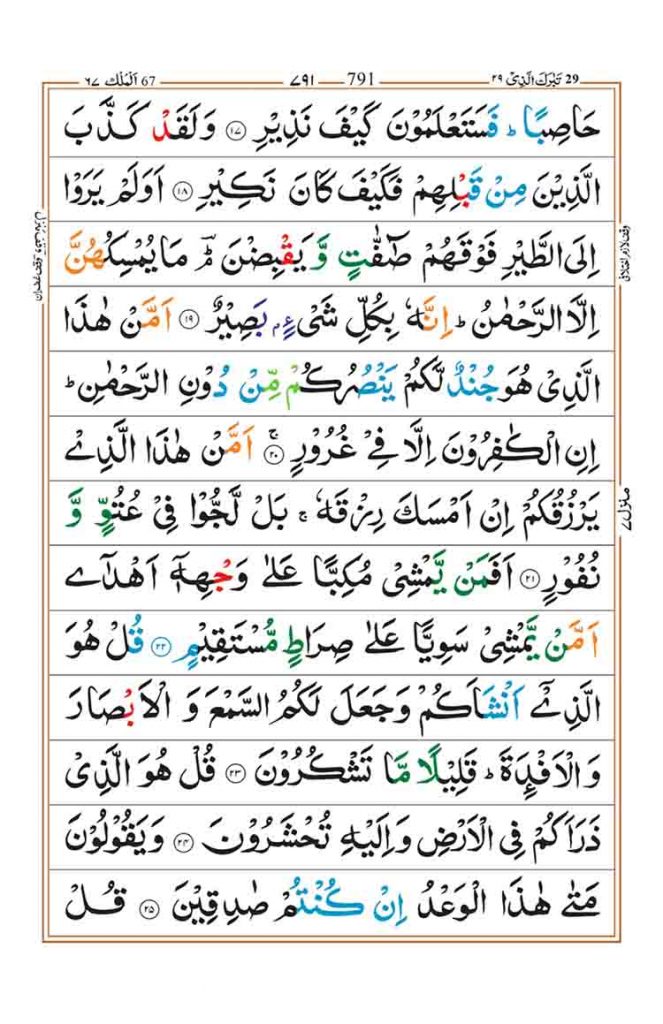 29 تَبٰرَكَ الَّذِیْ ٢٩ 791 ٧٩١ 67 اَلْمُلْك ٦٧
حَاصِبًا ؕ فَسَتَعْلَمُوْنَ كَیْفَ نَذِیْرِ ۝١٧ وَ لَقَدْ كَذَّبَ
الَّذِیْنَ مِنْ قَبْلِهِمْ فَكَیْفَ كَانَ نَكِیْرِ ۝١٨ اَوَلَمْ یَرَوْا
اِلَی الطَّیْرِ فَوْقَهُمْ صٰٓفّٰتٍ وَّ یَقْبِضْنَ ؔۘؕ مَا یُمْسِكُهُنَّ
اِلَّا الرَّحْمٰنُ ؕ اِنَّهٗ بِكُلِّ شَیْءٍۭ بَصِیْرٌ ۝١٩ اَمَّنْ هٰذَا
الَّذِیْ هُوَ جُنْدٌ لَّكُمْ یَنْصُرُكُمْ مِّنْ دُوْنِ الرَّحْمٰنِ ؕ
اِنِ الْكٰفِرُوْنَ اِلَّا فِیْ غُرُوْرٍ ۝٢٠ۚ اَمَّنْ هٰذَا الَّذِیْ
یَرْزُقُكُمْ اِنْ اَمْسَكَ رِزْقَهٗ ۚ بَلْ لَّجُّوْا فِیْ عُتُوٍّ وَّ
نُفُوْرٍ ۝٢١ اَفَمَنْ یَّمْشِیْ مُكِبًّا عَلٰی وَجْهِهٖۤ اَهْدٰۤی
اَمَّنْ یَّمْشِیْ سَوِیًّا عَلٰی صِرَاطٍ مُّسْتَقِیْمٍ ۝٢٢ قُلْ هُوَ
الَّذِیْۤ اَنْشَاَكُمْ وَ جَعَلَ لَكُمُ السَّمْعَ وَ الْاَبْصَارَ
وَ الْاَفْـِٕدَةَ ؕ قَلِیْلًا مَّا تَشْكُرُوْنَ ۝٢٣ قُلْ هُوَ الَّذِیْ
ذَرَاَكُمْ فِی الْاَرْضِ وَ اِلَیْهِ تُحْشَرُوْنَ ۝٢٤ وَ یَقُوْلُوْنَ
مَتٰی هٰذَا الْوَعْدُ اِنْ كُنْتُمْ صٰدِقِیْنَ ۝٢٥ قُلْ
منزل ٧